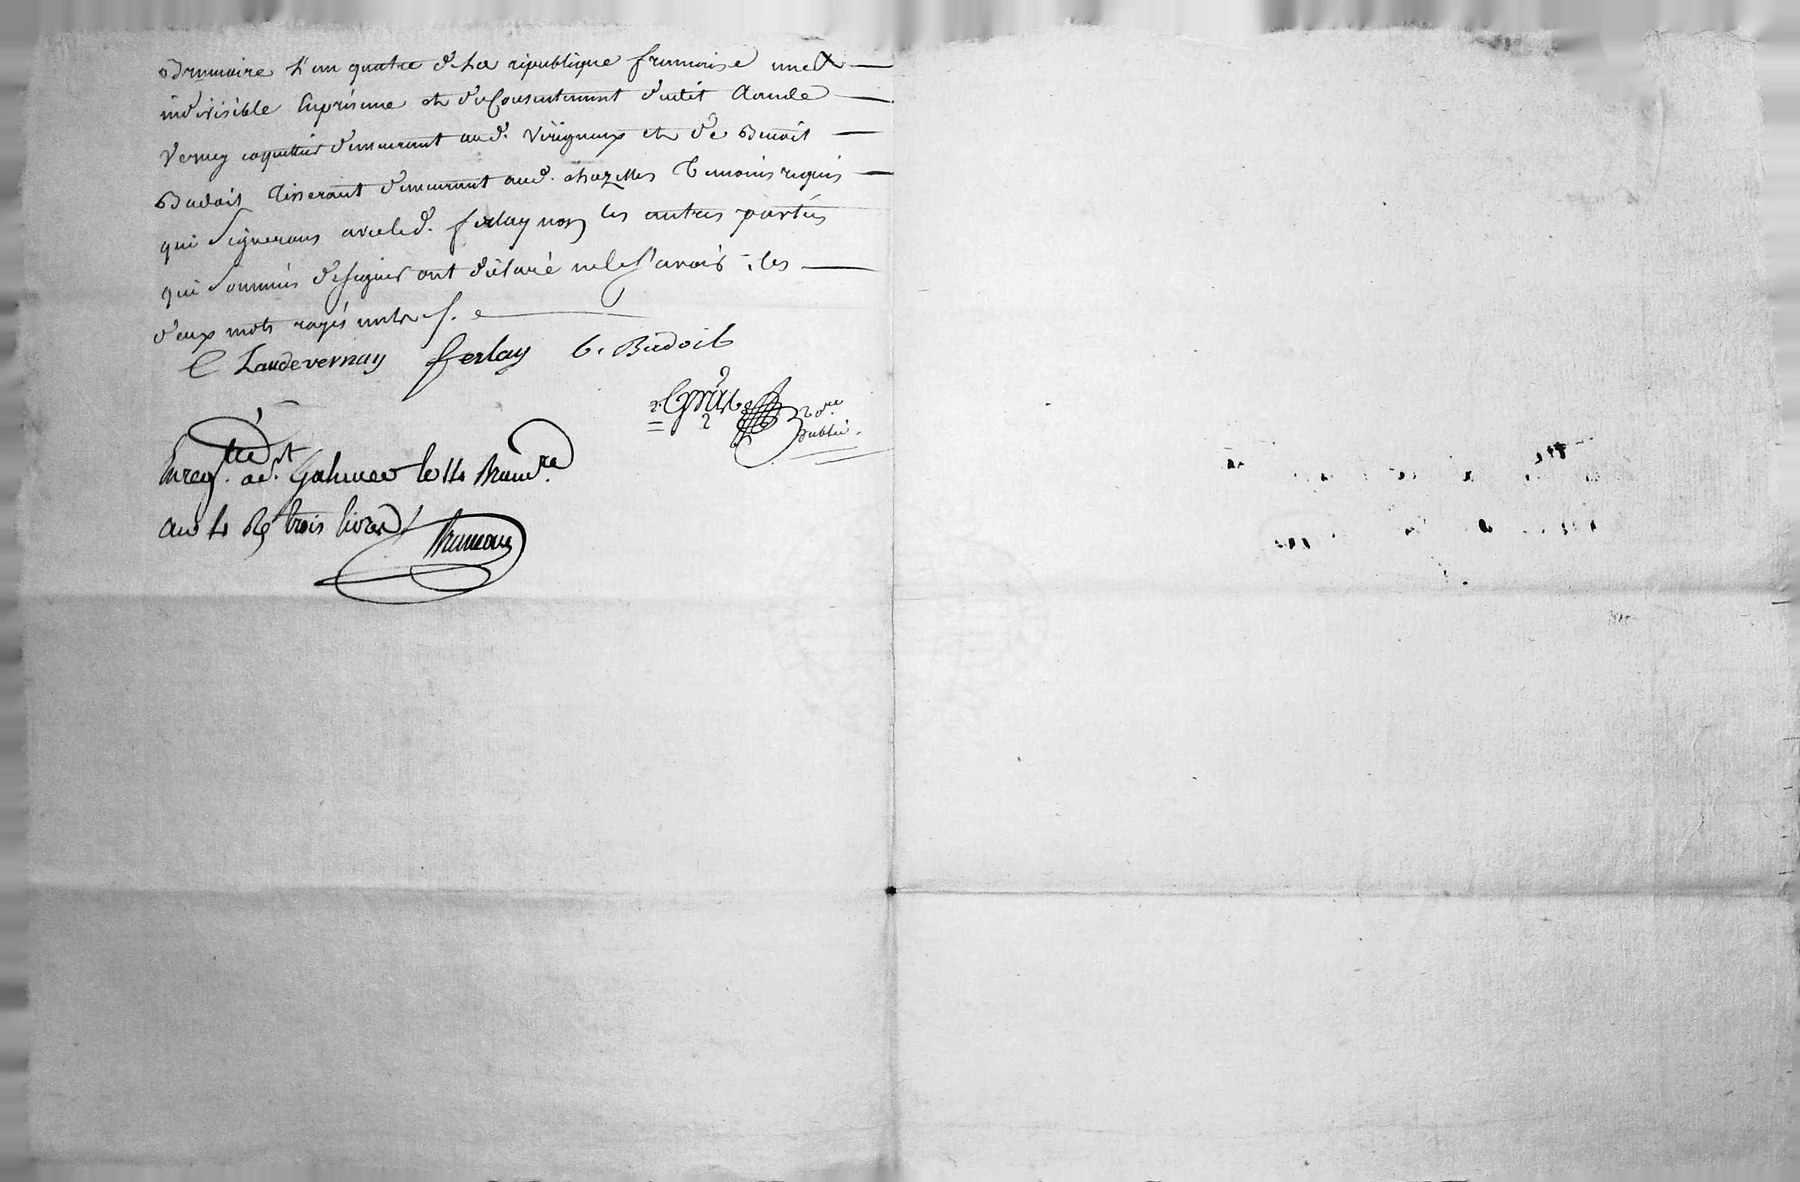 Brumaire l'an quatre de La république francaise une &
indivisible En présence et du Consentement dudit Claude
Verney coquettier demeurant aud. Virigneux et de Benoit
Badoit Tisserant demeurant aud. chazelles Temoins requis
qui Signerons avec led. ferlay non les autres parties
qui Sommés de signer ont déclaré ne le Savoir : les
deux mots rayés nuls
Claude vernay ferlay b. Badoit
no.re public
Enreg.tré a S.t Galmier le 14 Brum.re
an 4 R. trois livres